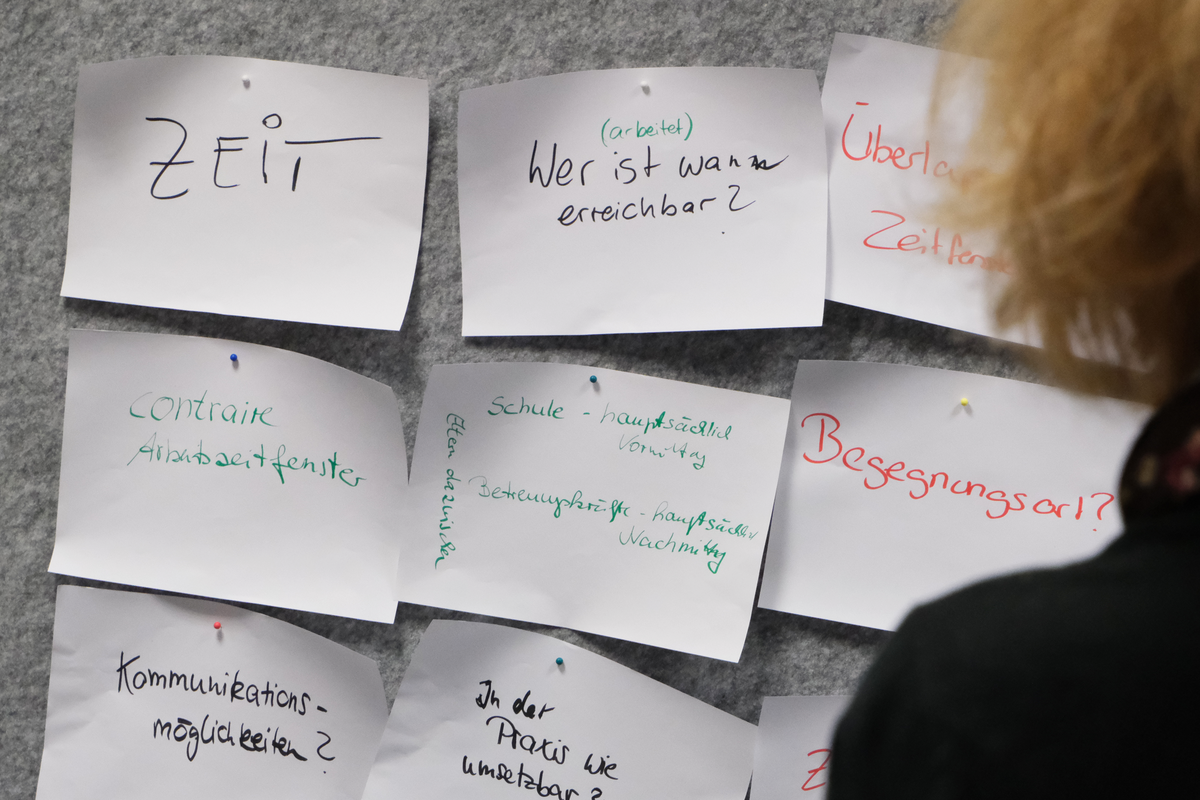 ZEiT
(arbeitet)
Wer ist wann
erreichbar?
Überla
Zeitfens
contraire
Arbeitszeitfenster
Eltern dazwischen
Schule - hauptsächlich
Vormittag
Betreuungskräfte - hauptsächlich
Nachmittag
Begegnungsort?
Kommunikations-
möglichkeiten?
In der
Praxis wie
umsetzbar?
Z